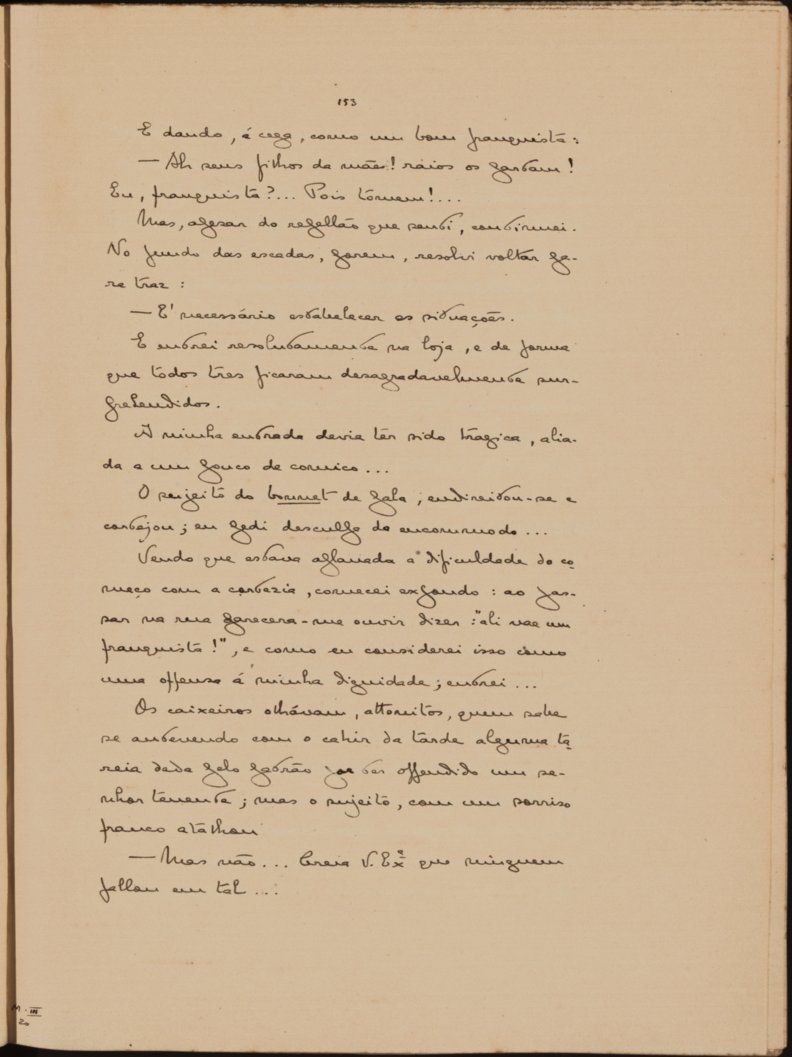 153
E dando, á cega, como um bom franquista:
— Ah seus filhos da mãe! ráios os partam!
Eu, franquista?... Pois tômem!...
Mas, apesar do repellão que senti, continuei.
No fundo das escadas, porem, resolvi voltar pa-
ra traz:
— E' necessário estabelecer as situações.
E entrei resolutamente na loja, e de forma
que todos tres ficaram desagradavelmente sur-
prehendidos.
A minha entrada devia ter sido tragica, alia-
da a um pouco de comico...
O sujeito do bonnet de gala, endireitou-se e
cortejou; eu pedi desculpa do encommodo...
Vendo que estava aplanada a dificuldade do co-
meço com a cortezia, comecei expondo: ao pas-
sar na rua parecera-me ouvir dizer: "ali vae um
franquista!", e como eu considerei isso como
uma offensa á minha dignidade; entrei...
Os caixeiros olhávam, attonitos, quem sabe
se antevendo com o cahir da tarde alguma ta-
reia dada pelo patrão por ter offendido um se-
nhor tenente; mas o sujeito, com um sorriso
franco atalhou
— Mas não... Creia V. Exª que ninguem
fallou em tal...
M. III
20